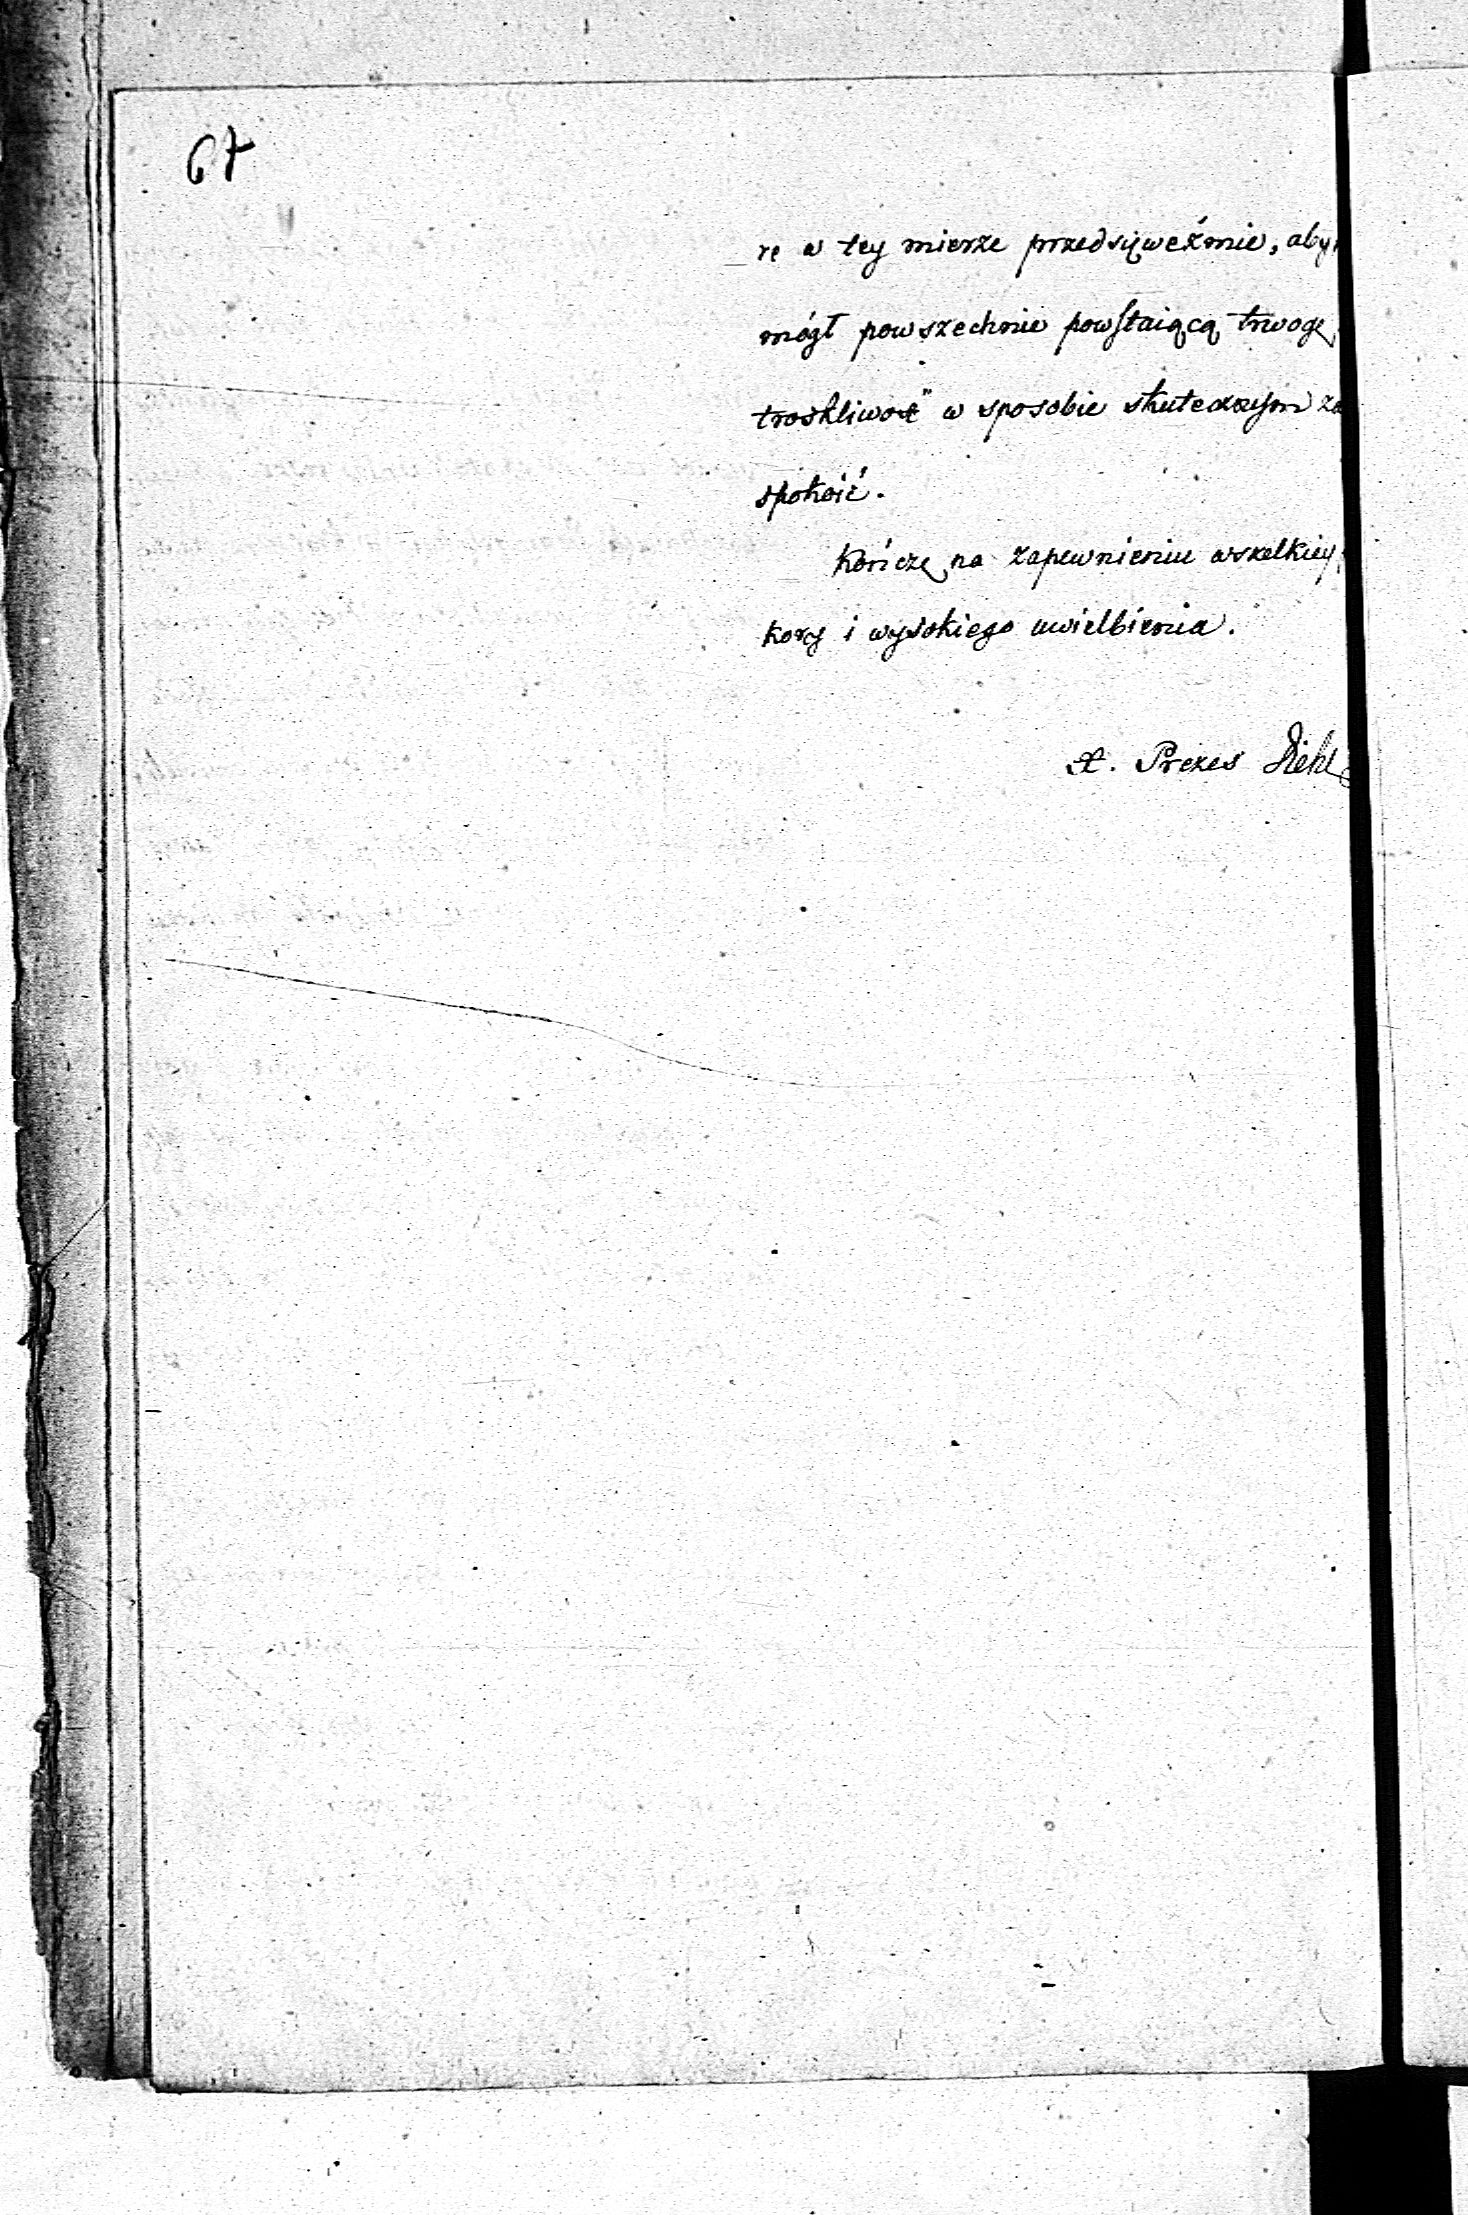 67
re w tey mierze przedsięweźmie, abym
mógł powszechnie powstaiącą trwogę
troskliwość w sposobie skutecznym za
spokoić.
Kończę na zapewnieniu wszelkiey
kory i wysokiego uwielbienia.
Prezes